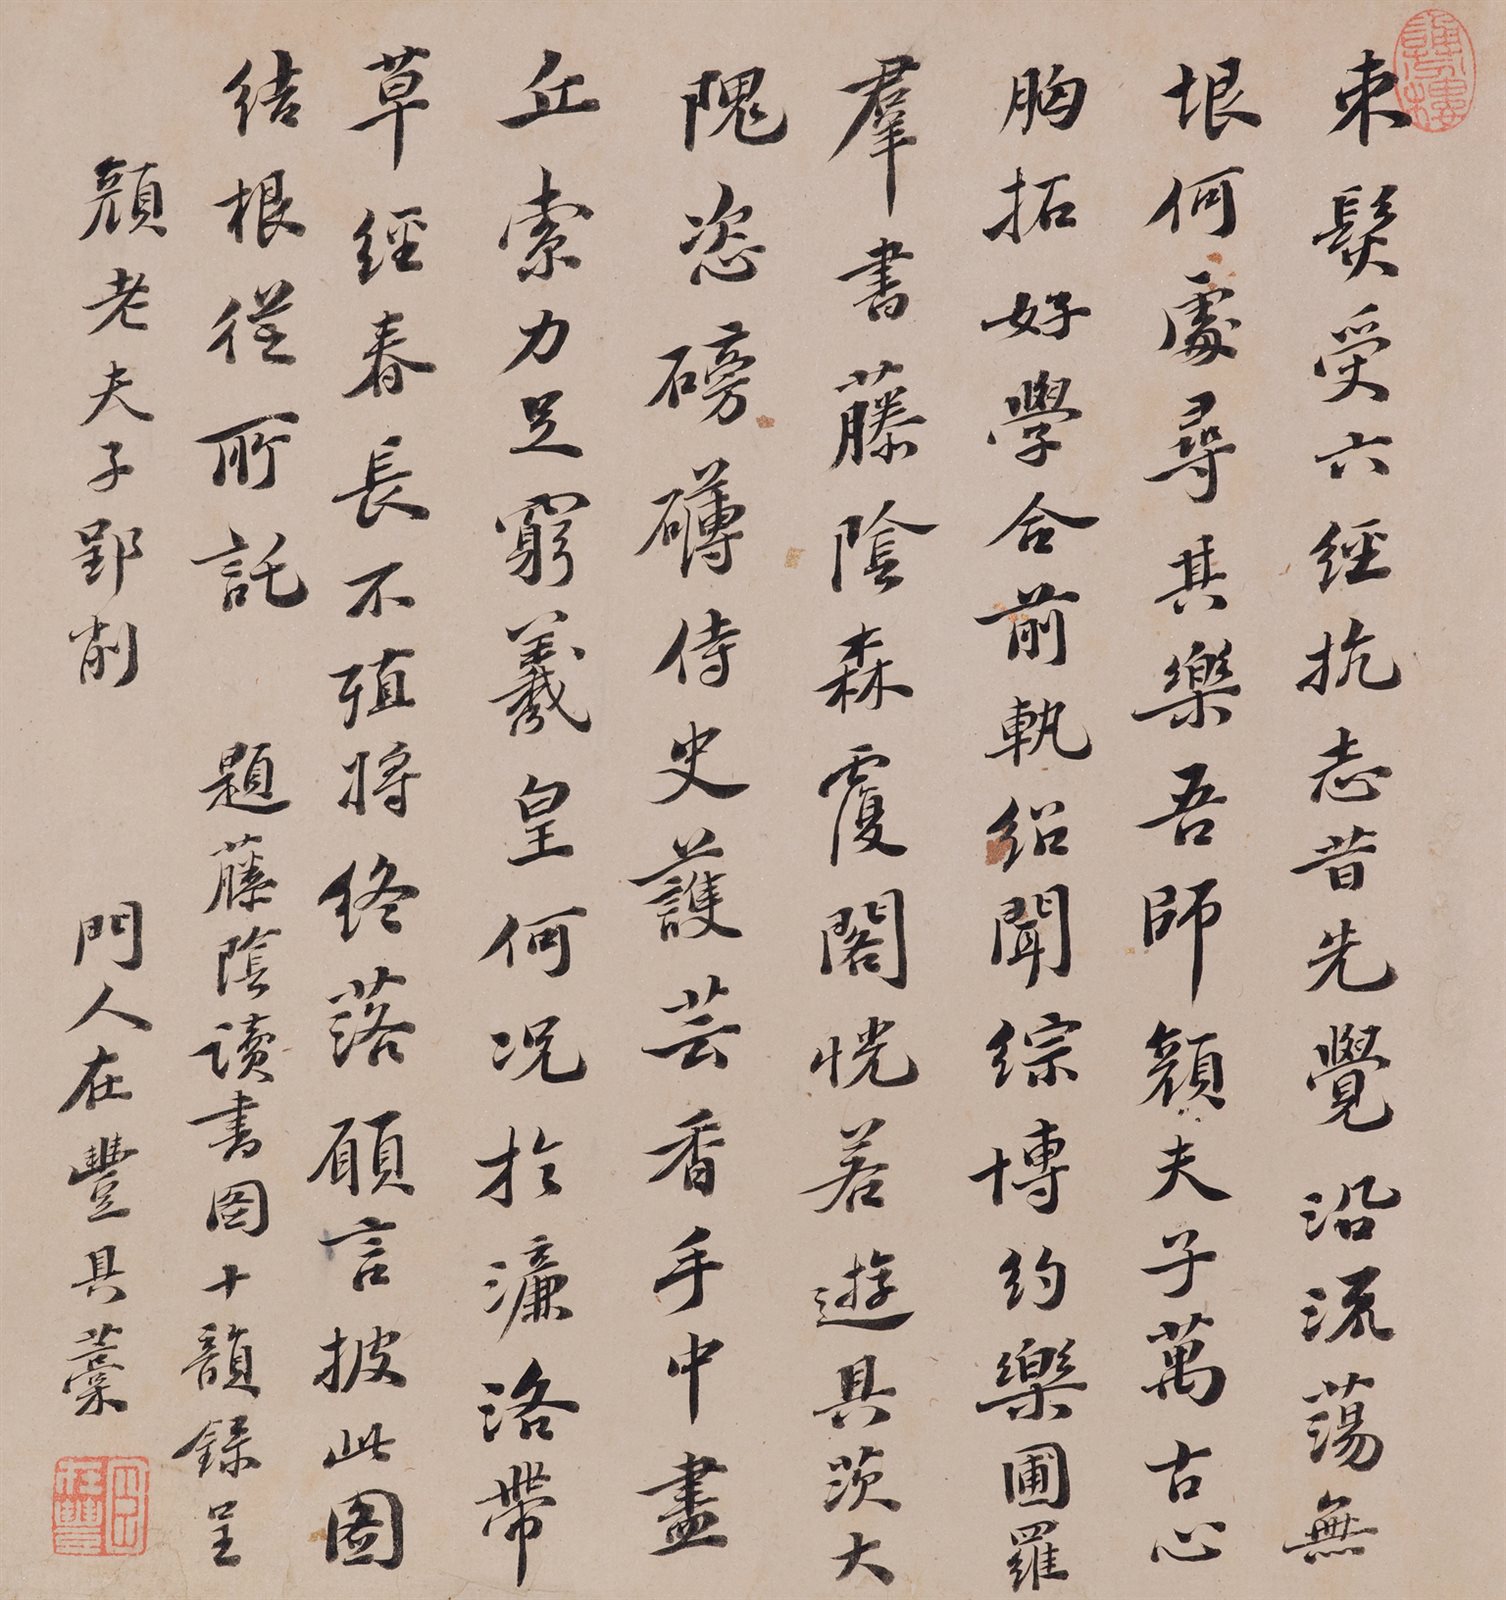 束髮受六經抗志昔先覺沿流蕩無
垠何處尋其樂吾師顏夫子萬古心
胸拓好學合前軌紹聞綜博約樂圃羅
羣書藤陰森覆閣恍若遊具茨大
隗恣磅礴侍史護芸香手中盡
丘索力足窮羲皇何況於濂洛帶
草經春長不殖將終落願言披此圖
結根從所託
題藤陰讀書圖十韻錄呈
顏老夫子郢削
門人在豐具藁